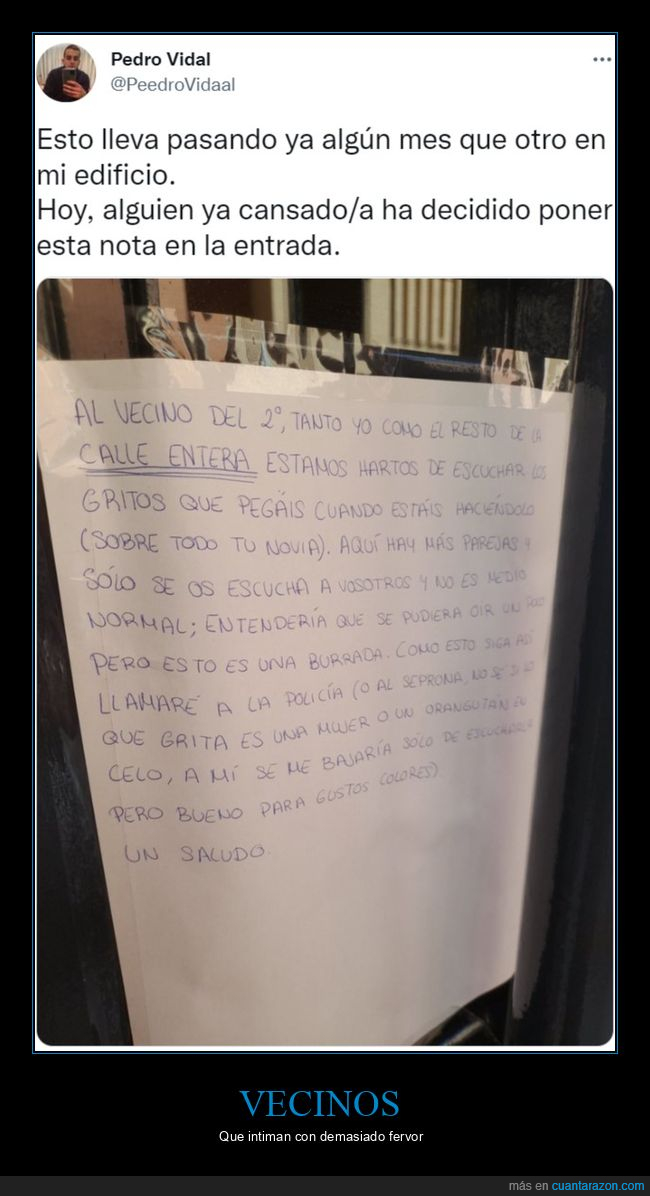 Pedro Vidal
@PeedroVidaal
Esto lleva pasando ya algún mes que otro en
mi edificio.
Hoy, alguien ya cansado/a ha decidido poner
esta nota en la entrada.
AL VECINO DEL 2º, TANTO YO COMO EL RESTO DE LA
CALLE ENTERA ESTAMOS HARTOS DE ESCUCHAR LOS
GRITOS QUE PEGÁIS CUANDO ESTÁIS HACIÉNDOLO
(SOBRE TODO TU NOVIA). AQUÍ HAY MÁS PAREJAS Y
SÓLO SE OS ESCUCHA A VOSOTROS Y NO ES MEDIO
NORMAL; ENTENDERÍA QUE SE PUDIERA OIR UN POCO
PERO ESTO ES UNA BURRADA. COMO ESTO SIGA ASÍ
LLAMARÉ A LA POLICÍA (O AL SEPRONA, NO SÉ SI LO
QUE GRITA ES UNA MUJER O UN ORANGUTÁN EN
CELO, A MÍ SE ME BAJARÍA SÓLO DE ESCUCHARLA
PERO BUENO PARA GUSTOS COLORES).
UN SALUDO.
VECINOS
Que intiman con demasiado fervor
más en cuantarazon.com